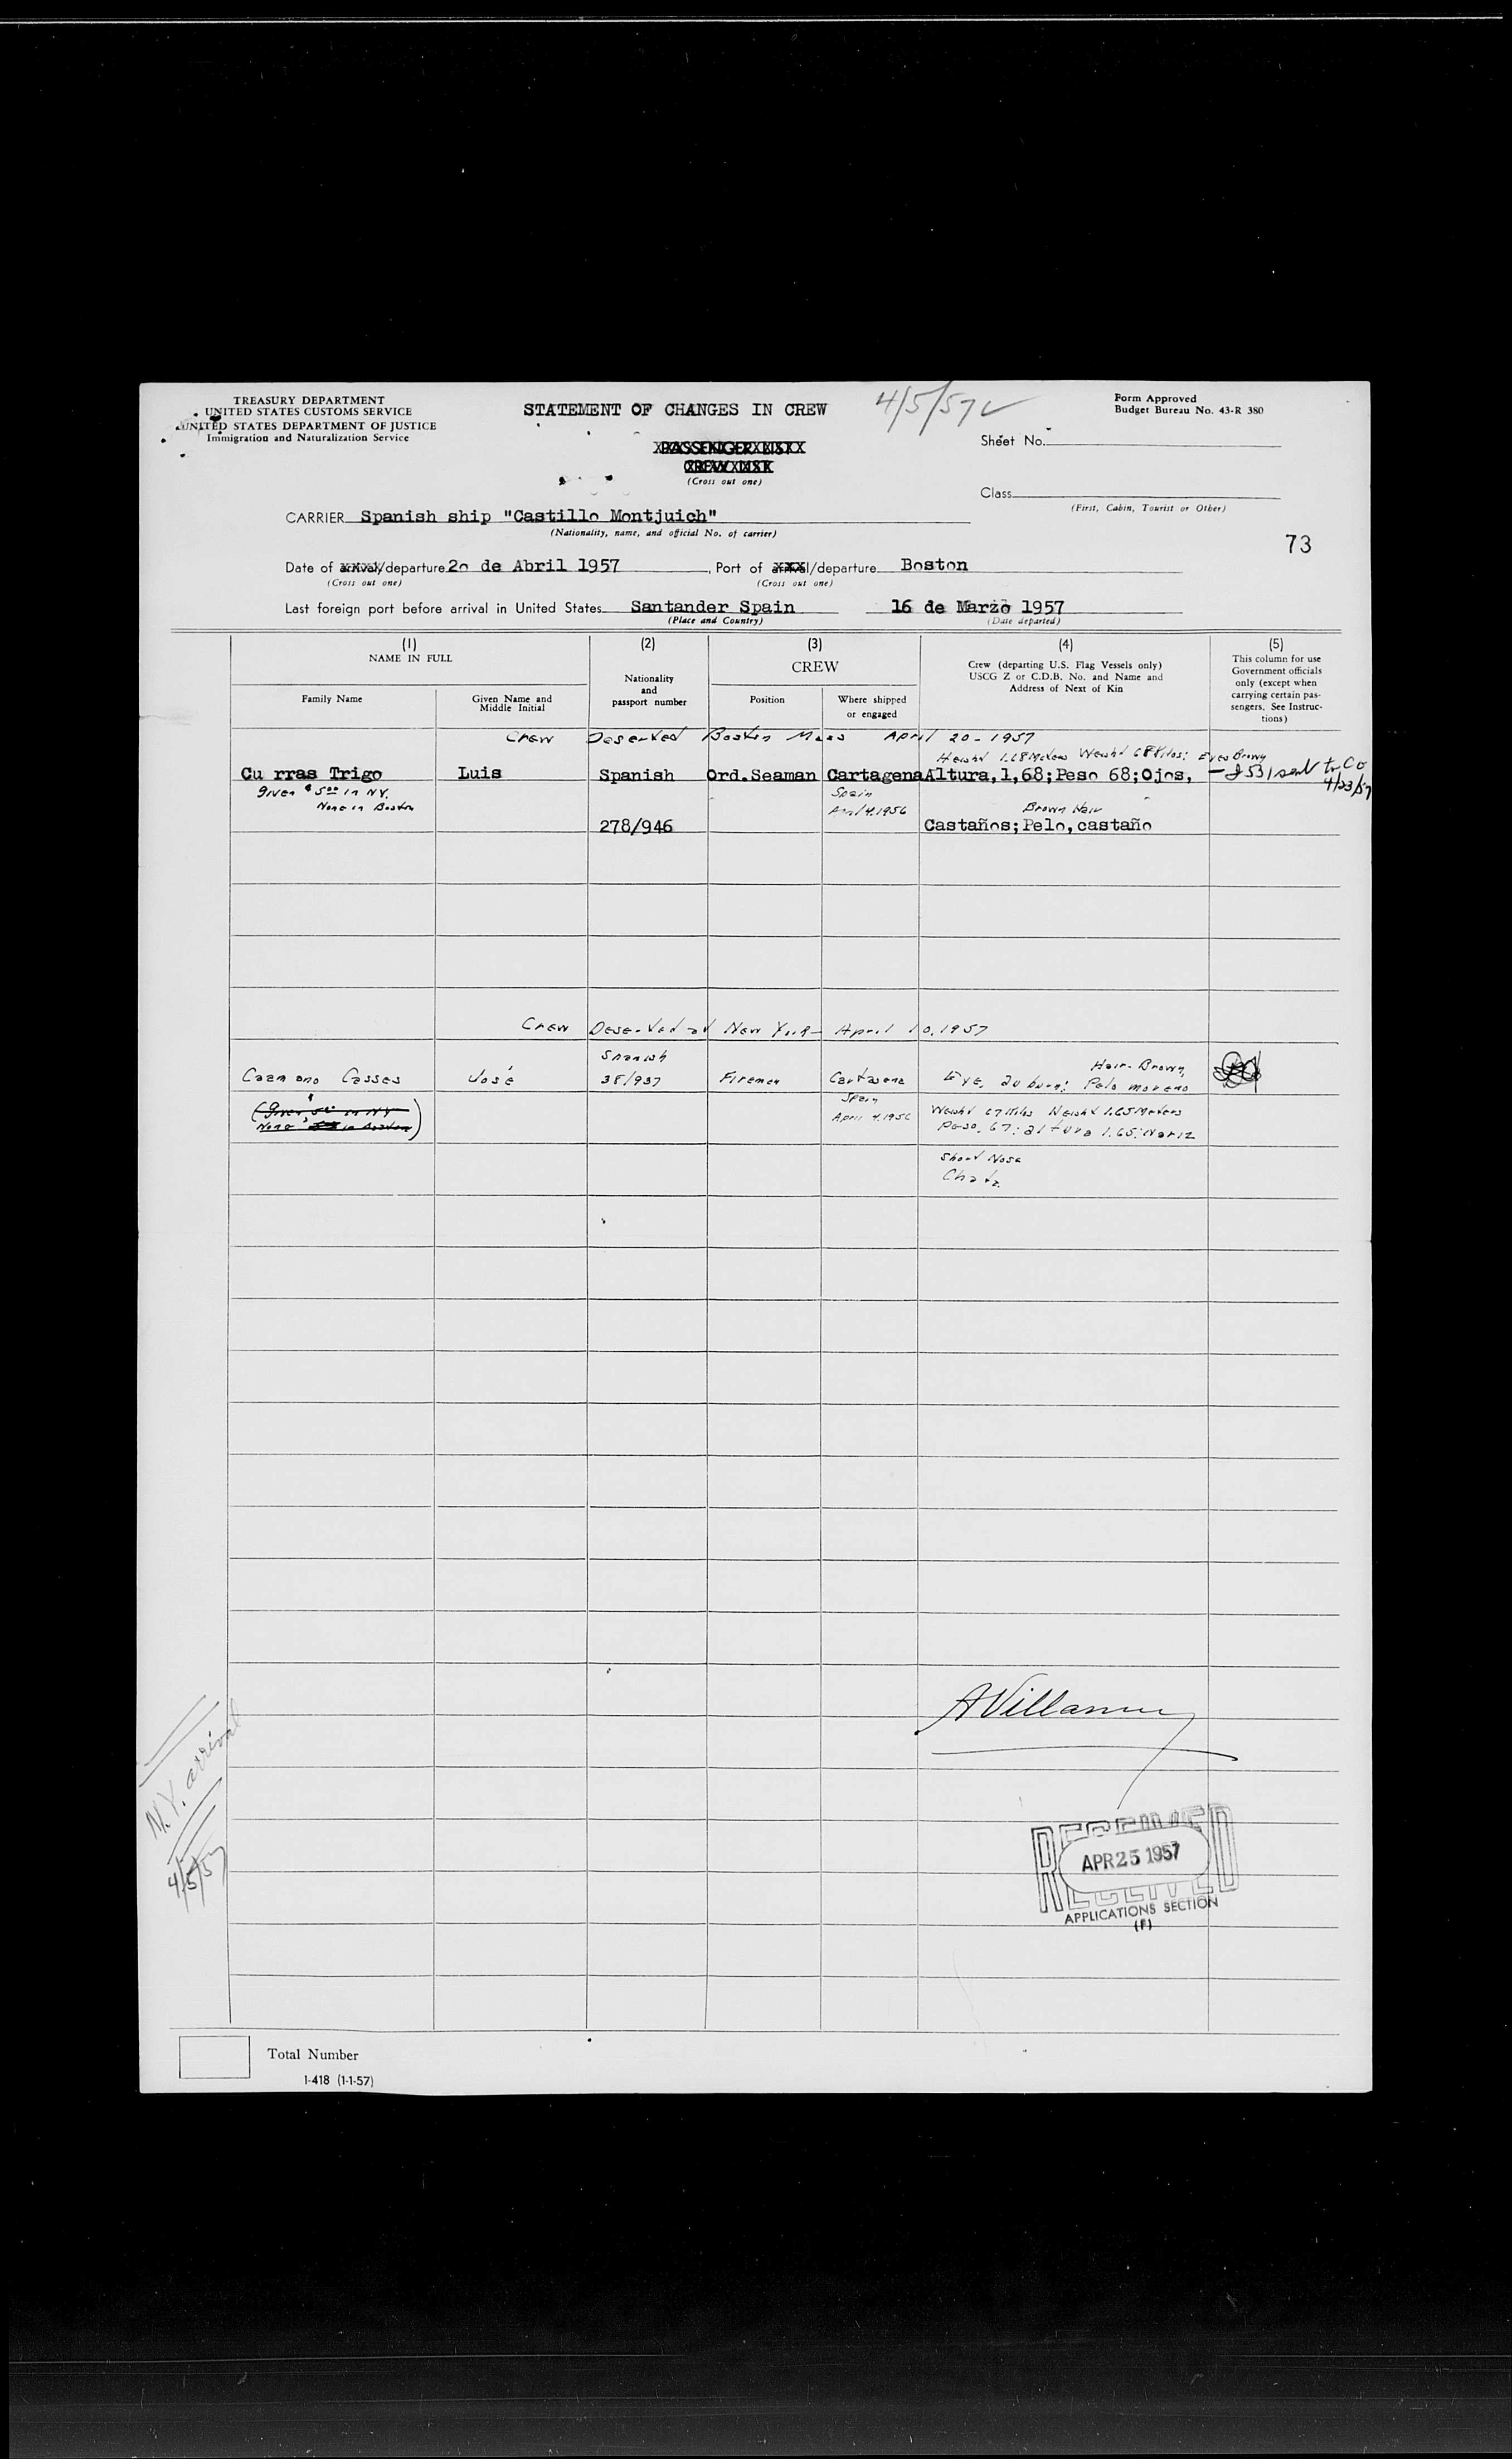 TREASURY DEPARTMENT
UNITED STATES CUSTOMS SERVICE
UNITED STATES DEPARTMENT OF JUSTICE
Immigration and Naturalization Service
STATEMENT OF CHANGES IN CREW
4/5/57
Form Approved
Budget Bureau No. 43-R 380
PASSENGER LIST
CREW LIST
(Cross out one)
Sheet No.
Class
(First, Cabin, Tourist or Other)
CARRIER Spanish ship "Castillo Montjuich"
(Nationality, name, and official No. of carrier)
73
Date of arrival/departure 20 de Abril 1957, Port of arrival/departure Boston
(Cross out one) (Cross out one)
Last foreign port before arrival in United States Santander Spain 16 de Marzo 1957
(Place and Country) (Date departed)
(1)
NAME IN FULL
Family Name
Given Name and
Middle Initial
(2)
Nationality
and
passport number
(3)
CREW
Position
Where shipped
or engaged
(4)
Crew (departing U.S. Flag Vessels only)
USCG Z or C.D.B. No. and Name and
Address of Next of Kin
(5)
This column for use
Government officials
only (except when
carrying certain pas-
sengers. See Instruc-
tions)
Crew Deserted Boston Mass April 20-1957
Height 1.68 Meters Weight 68 Kilos; Eyes Brown
Cu rras Trigo Luis Spanish Ord.Seaman Cartagena Altura,1,68;Peso 68;Ojos,
I 531 sent to Co
4/23/57
Given $5.00 in NY.
None in Boston
Spain
April 4,1956
Brown Hair
278/946 Castaños;Pelo,castaño
Crew Deserted at New York April 10, 1957
Spanish
Hair-Brown,
Caamano Casses José 38/937 Fireman Cartagena Pelo moreno
Spain
April 4, 1956
(Given $5.00 in NY
None in Boston)
Weight 67 Kilos Height 1.65 Meters
Peso, 67; altura 1.65; Nariz
Short Nose
Chata
AVillamu
N.Y. arrival
4/5/57
RECEIVED
APR 25 1957
RECEIVED
APPLICATIONS SECTION
(F)
Total Number
I-418 (1-1-57)